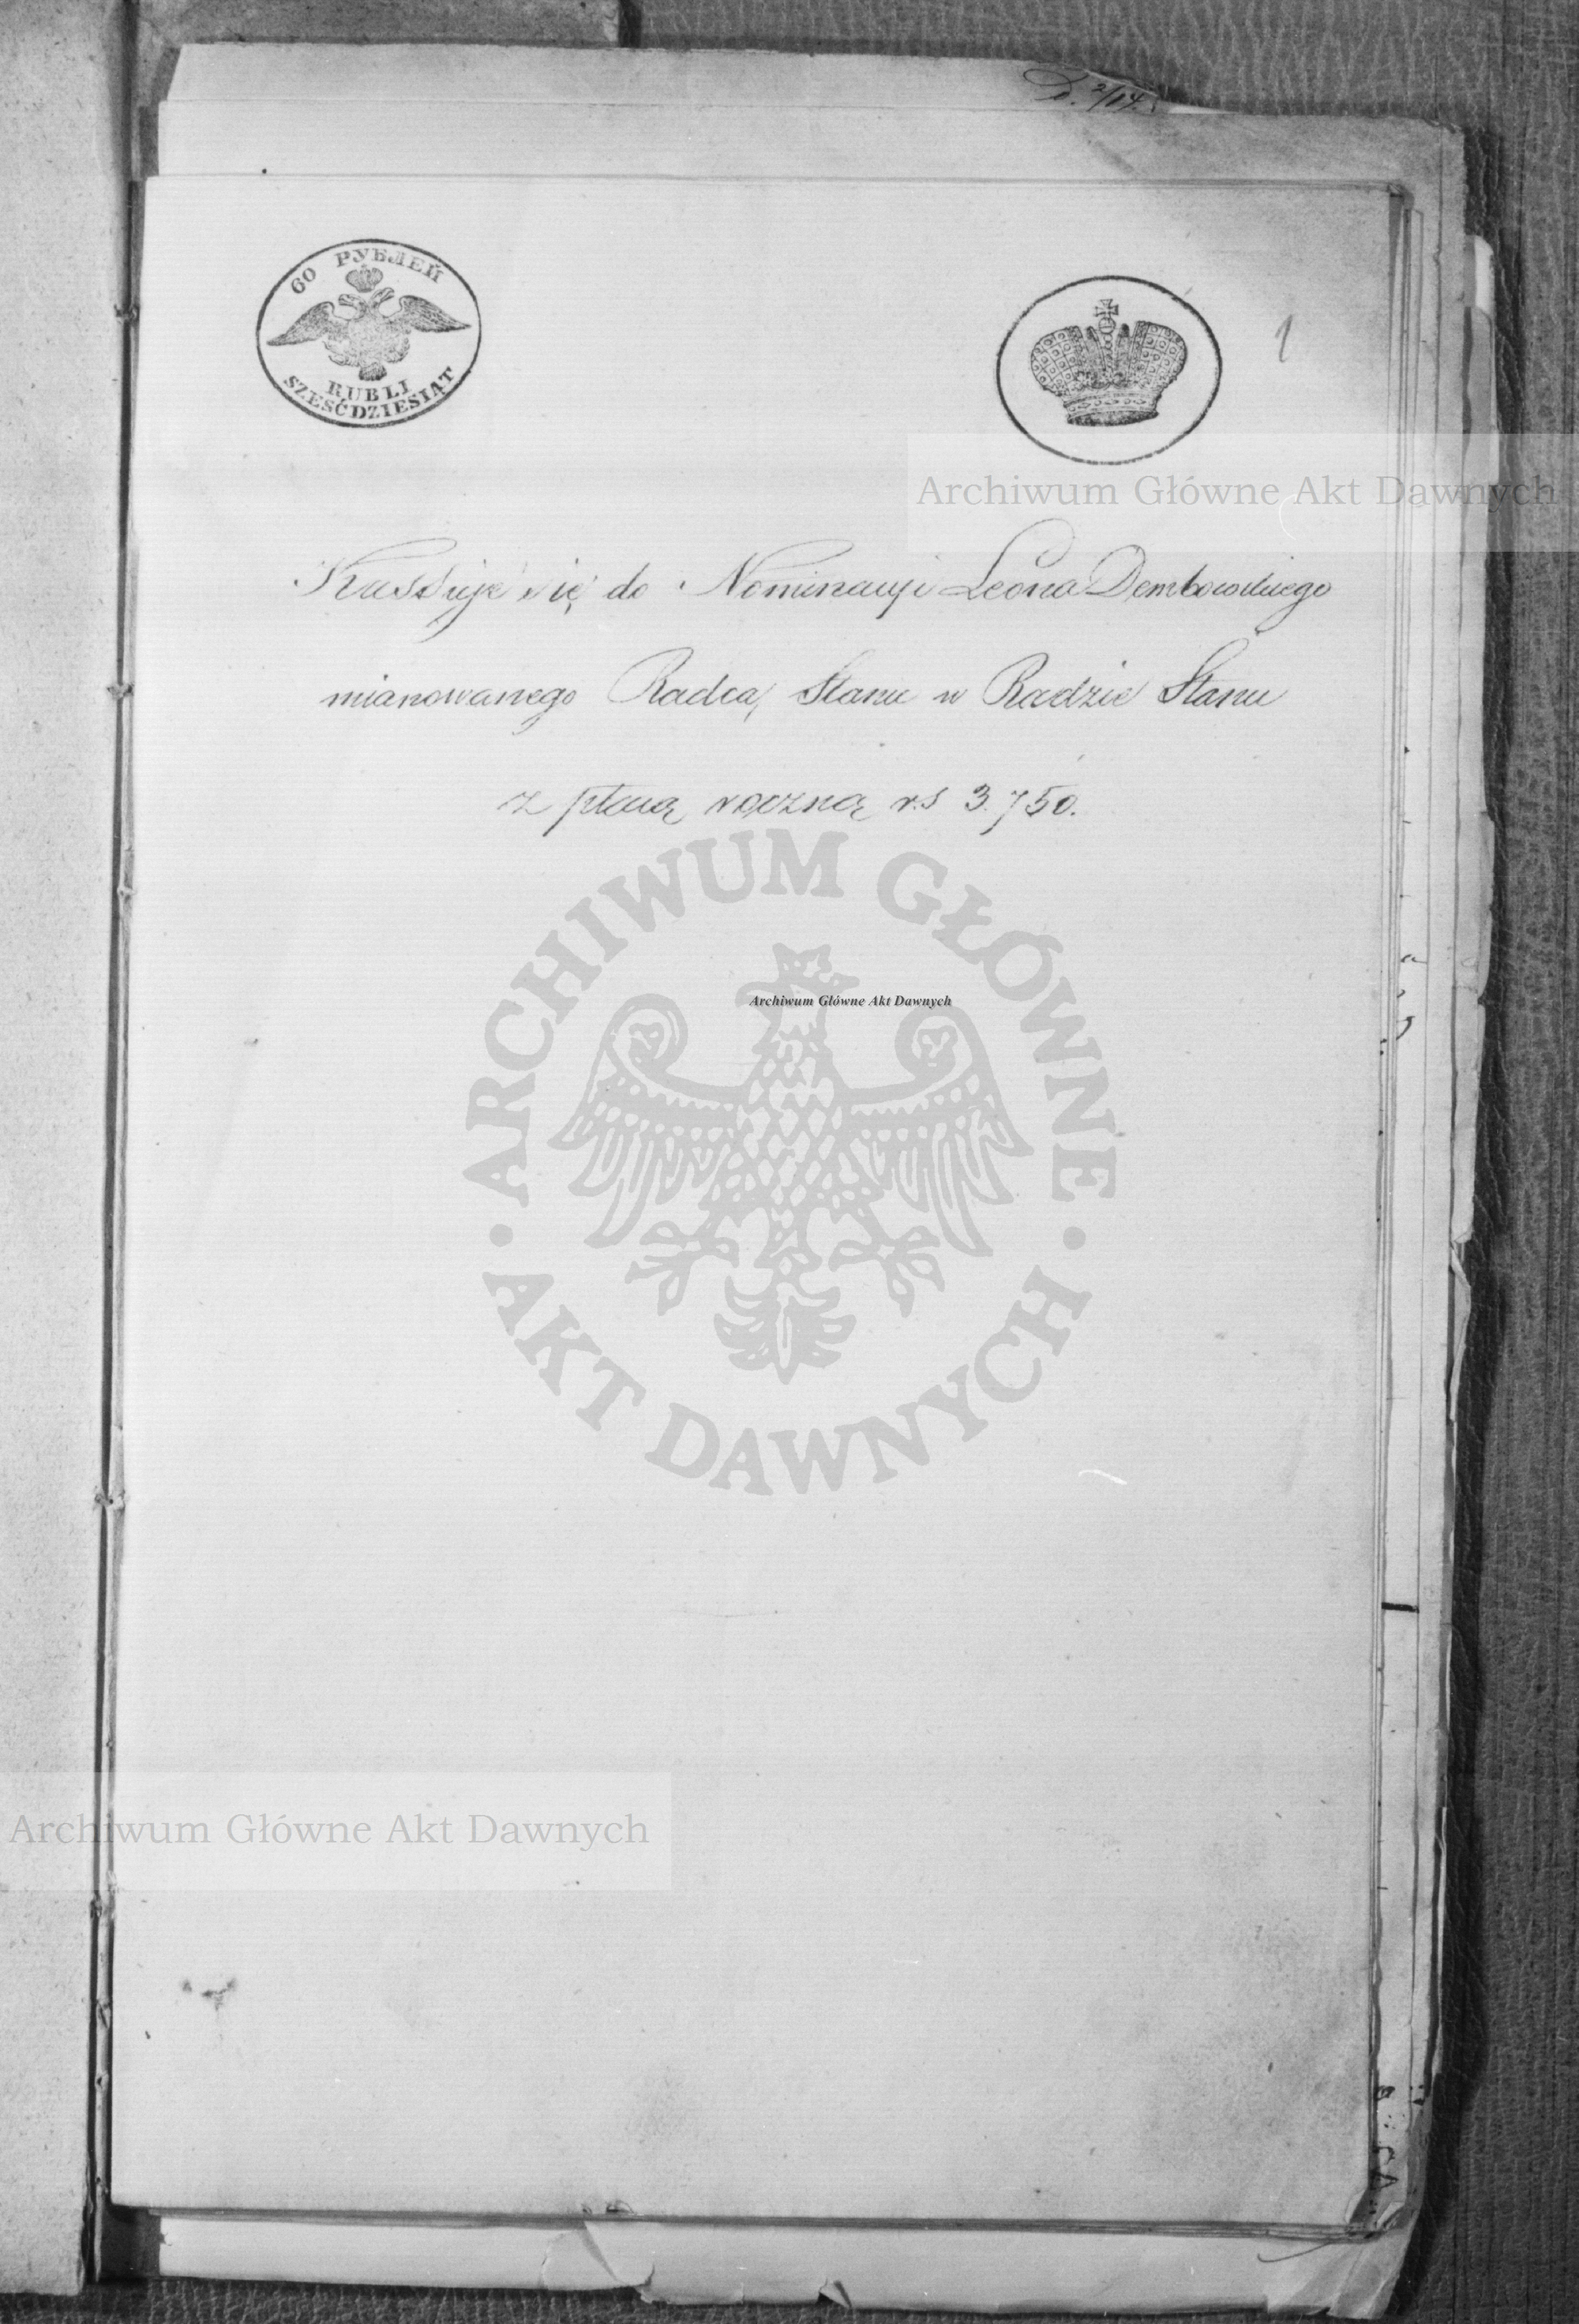 D. 2/14.
60 РУБЛЕЙ
RUBLI
SZEŚĆDZIESIĄT
1
Archiwum Główne Akt Dawnych
Kassuje się do Nominacyi Leona Dembowskiego
mianowanego Radcą Stanu w Radzie Stanu
z płacą roczną r.s 3.750.
ARCHIWUM GŁÓWNE
Archiwum Główne Akt Dawnych
AKT DAWNYCH
Archiwum Główne Akt Dawnych